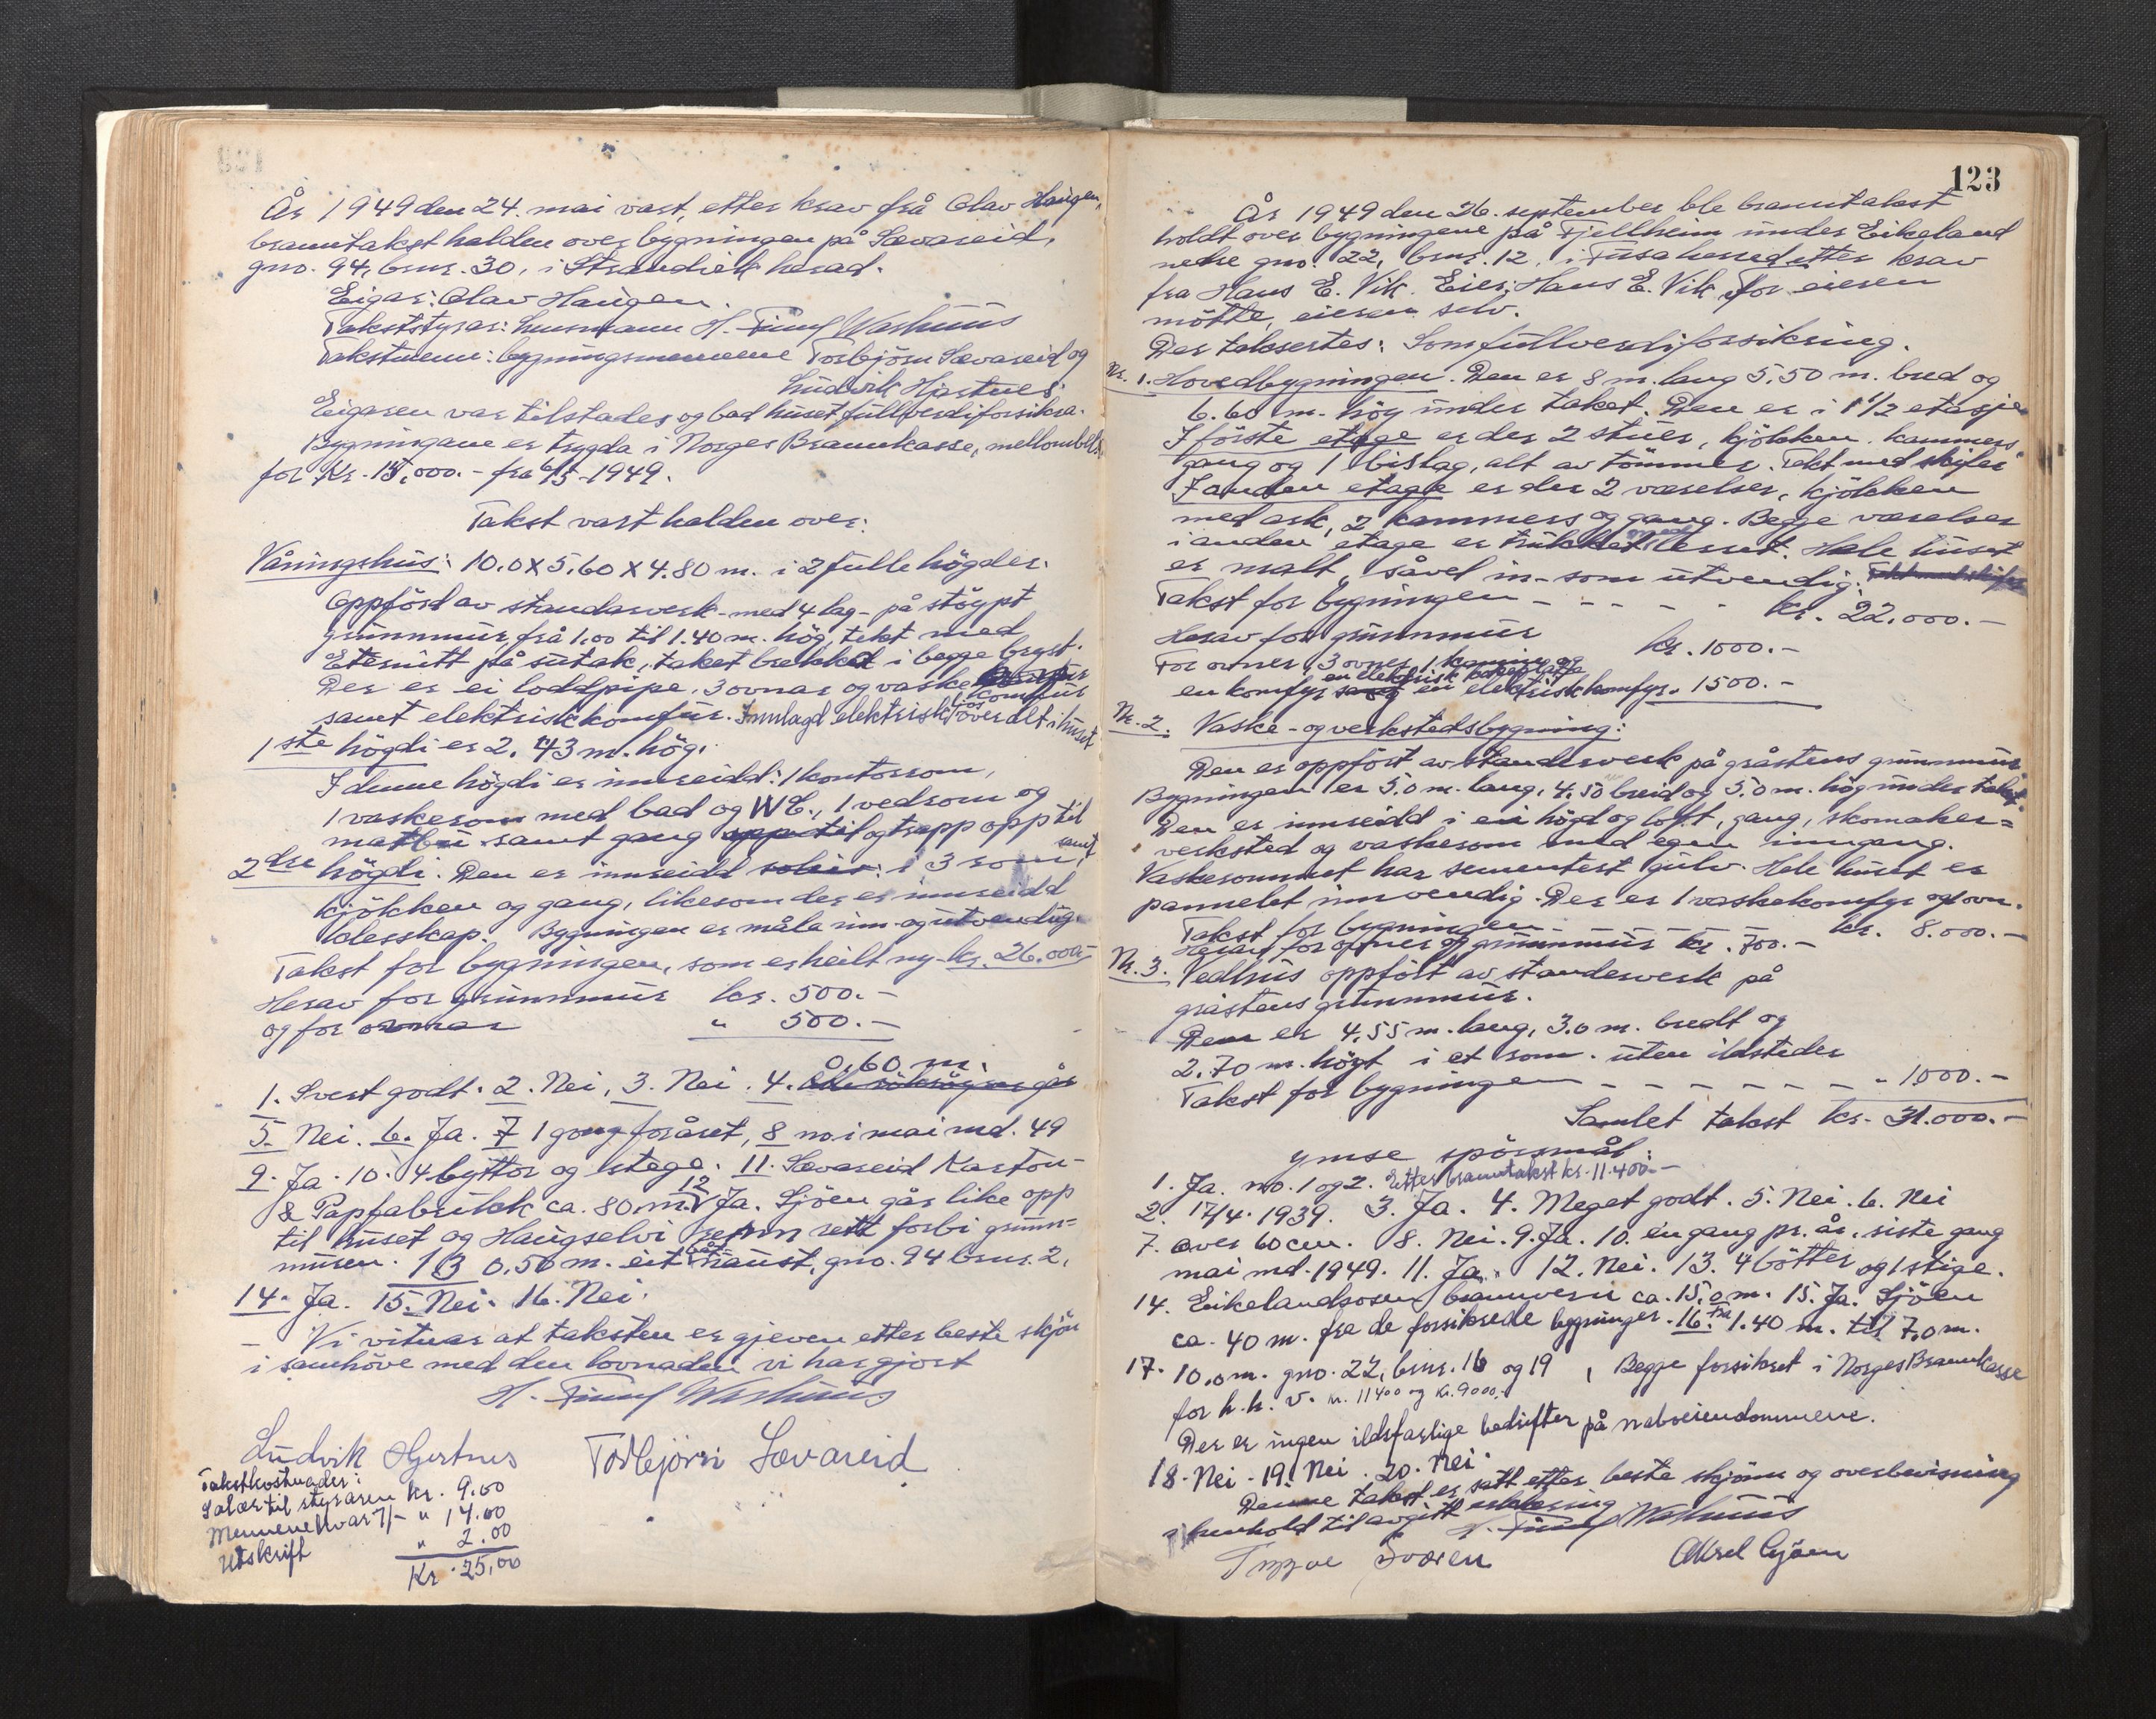 År 1949 den 24. mai vart, etter krav frå Olav Haugen,
branntakst halden over bygningen på Sævareid,
gno. 94, brnr. 30, i Strandvik herad.
Eigar: Olav Haugen.
Takststyrar: lensmann H. Finnf Washuus
Takstmenn: bygningsmennene Torbjörn Sævareid og
Ludvik Hjartnes
Eigaren var tilstades og bad huset fullverdiforsikra.
Bygningane er trygda i Norges Brannkasse, mellombels
for kr. 15,000.- fra 6/5-1949.
Takst vart halden over:
Våningshus: 10.0 X 5.60 X 4.80 m. i 2 fulle högder.
Oppförd av standarverk - med 4 lag - på stöypt
grunnmur, frå 1.00 til 1.40 m. hög, tekt med
Eternitt på sutak, taket brekka i begge bryst.
Der er ei loddpipe, 3 ovnar og vaskekomfur
samt elektrisk komfur. Innlagd elektrisk lys over alt i huset
1ste högdi er 2.43 m. hög.
I denne högdi er innreidd: 1 kontorrom,
1 vaskerom med bad og W C., 1 vedrom og
matbu samt gang og trapp opp til
2dre högdi. Den er innreidd i 3 rom, samt
kjökken og gang, likesom der er innreidd
klesskap. Bygningen er måla inn- og utvendig.
Takst for bygningen, som er heilt ny - kr. 26.000.-
Herav for grunnmur kr. 500.-
og for ovnar " 500.-
0.60 m.
1. Svert godt. 2. Nei, 3. Nei. 4.
5. Nei. 6. Ja. 7 1 gong foråret, 8 no i mai md. 49
9. Ja. 10. 4 byttor og stega. 11. Sævareid Karton-
& Papfabrikk ca. 80 m. 12 Ja. Sjöen går like opp
til huset og Haugselvi renn rett forbi grunn=
muren. 13 0.50 m. eit båtnaust, gno. 94 brnr. 2,
14. Ja. 15. Nei. 16. Nei.
- Vi vitnar at taksten er gjeven etter beste skjön
i samhöve med den lovnaden vi har gjort
H. Finnf Washuus
Ludvik Hjartnes Torbjörn Sævareid
Takstkostnader:
Salær til styraren kr. 9.00
Mennene kvar 7/- " 14.00
Utskrift " 2.00
Kr. 25,00
123
År 1949 den 26. september ble branntakst
holdt over bygningene på Fjellheim under Eikeland
nedre gno. 22, brnr. 12, i Fusa herred etter krav
fra Hans E. Vik. Eier: Hans E. Vik, For eieren
mötte, eieren selv.
Der taksertes: Som fullverdiforsikring.
Nr. 1. Hovedbygningen. Den er 8 m. lang 5,50 m. bred og
6.60 m. höy under taket. Den er i 1 1/2 etasje
I förste etage er der 2 stuer, kjökken, kammers,
gang og 1 bislag, alt av tömmer. Tekt med skifer
I anden etage er der 2 værelser, kjökken
med ark, 2 kammers og gang. Begge værelser
i anden etage er trukket med lerret. Hele huset
er malt, såvel in- som utvendig. Tekt med skifer
Takst for bygningen - - - - - kr. 22.000.-
Herav for grunnmur kr. 1000.-
For ovner, 3 ovner, 1 kamin og
en elektrisk kokeplate
en komfyr en elektrisk komfyr. 1500.-
Nr. 2. Vaske- og verkstedsbygning:
Den er oppfört av standerverk på gråstens grunnmur
Bygningen er 5.0 m. lang, 4,50 breid og 5.0 m. hög under taket.
Den er innreidd i ein högd og loft, gang, skomaker=
verksted og vaskerom med egen inngang.
Vaskerommet har sementert gulv. Hele huset er
pannelet innvendig. Der er 1 vaskekomfyr og ovn.
Takst for bygningen - - - - - - kr. 8.000.-
Herav for ovner og grunnmur kr. 700.-
Nr. 3. Vedhus oppfört av standerverk på
gråstens grunnmur.
Den er 4,55 m. lang, 3.0 m. bredt og
2.70 m. högt i et rom. uten ildsteder
Takst for bygningen - - - - - - - " 1,000.-
Samlet takst kr. 31.000.-
ymse spörsmål:
1. Ja. no. 1 og 2. Etter branntakst kr. 11.400.-
2. 17/4. 1939. 3. Ja. 4. Meget godt. 5. Nei. 6. Nei
7. over 60 cm. 8. Nei. 9. Ja. 10. én gang pr. år, siste gang
mai md. 1949. 11. Ja. 12. Nei. 13. 4 bötter og 1 stige.
14. Eikelandsosen brannvern ca. 15.0 m. 15. Ja. Sjöen
ca. 40 m. fra de forsikrede bygninger. 16. Fra 1.40 m. til 7.0 m.
17. 10.0 m. gno. 22, brnr. 16 og 19, Begge forsikret i Norges Brannkasse
for h. h. v. kr. 11400 og kr. 9000,-
Der er ingen ildsfarlige bedrifter på naboeiendommene.
18. Nei - 19. Nei. 20. Nei.
Denne takst er satt etter beste skjönn og overbevisning
i henhold til avgitt erklæring H. Finnf Washuus
Trygve Sværen Aksel Gjöen